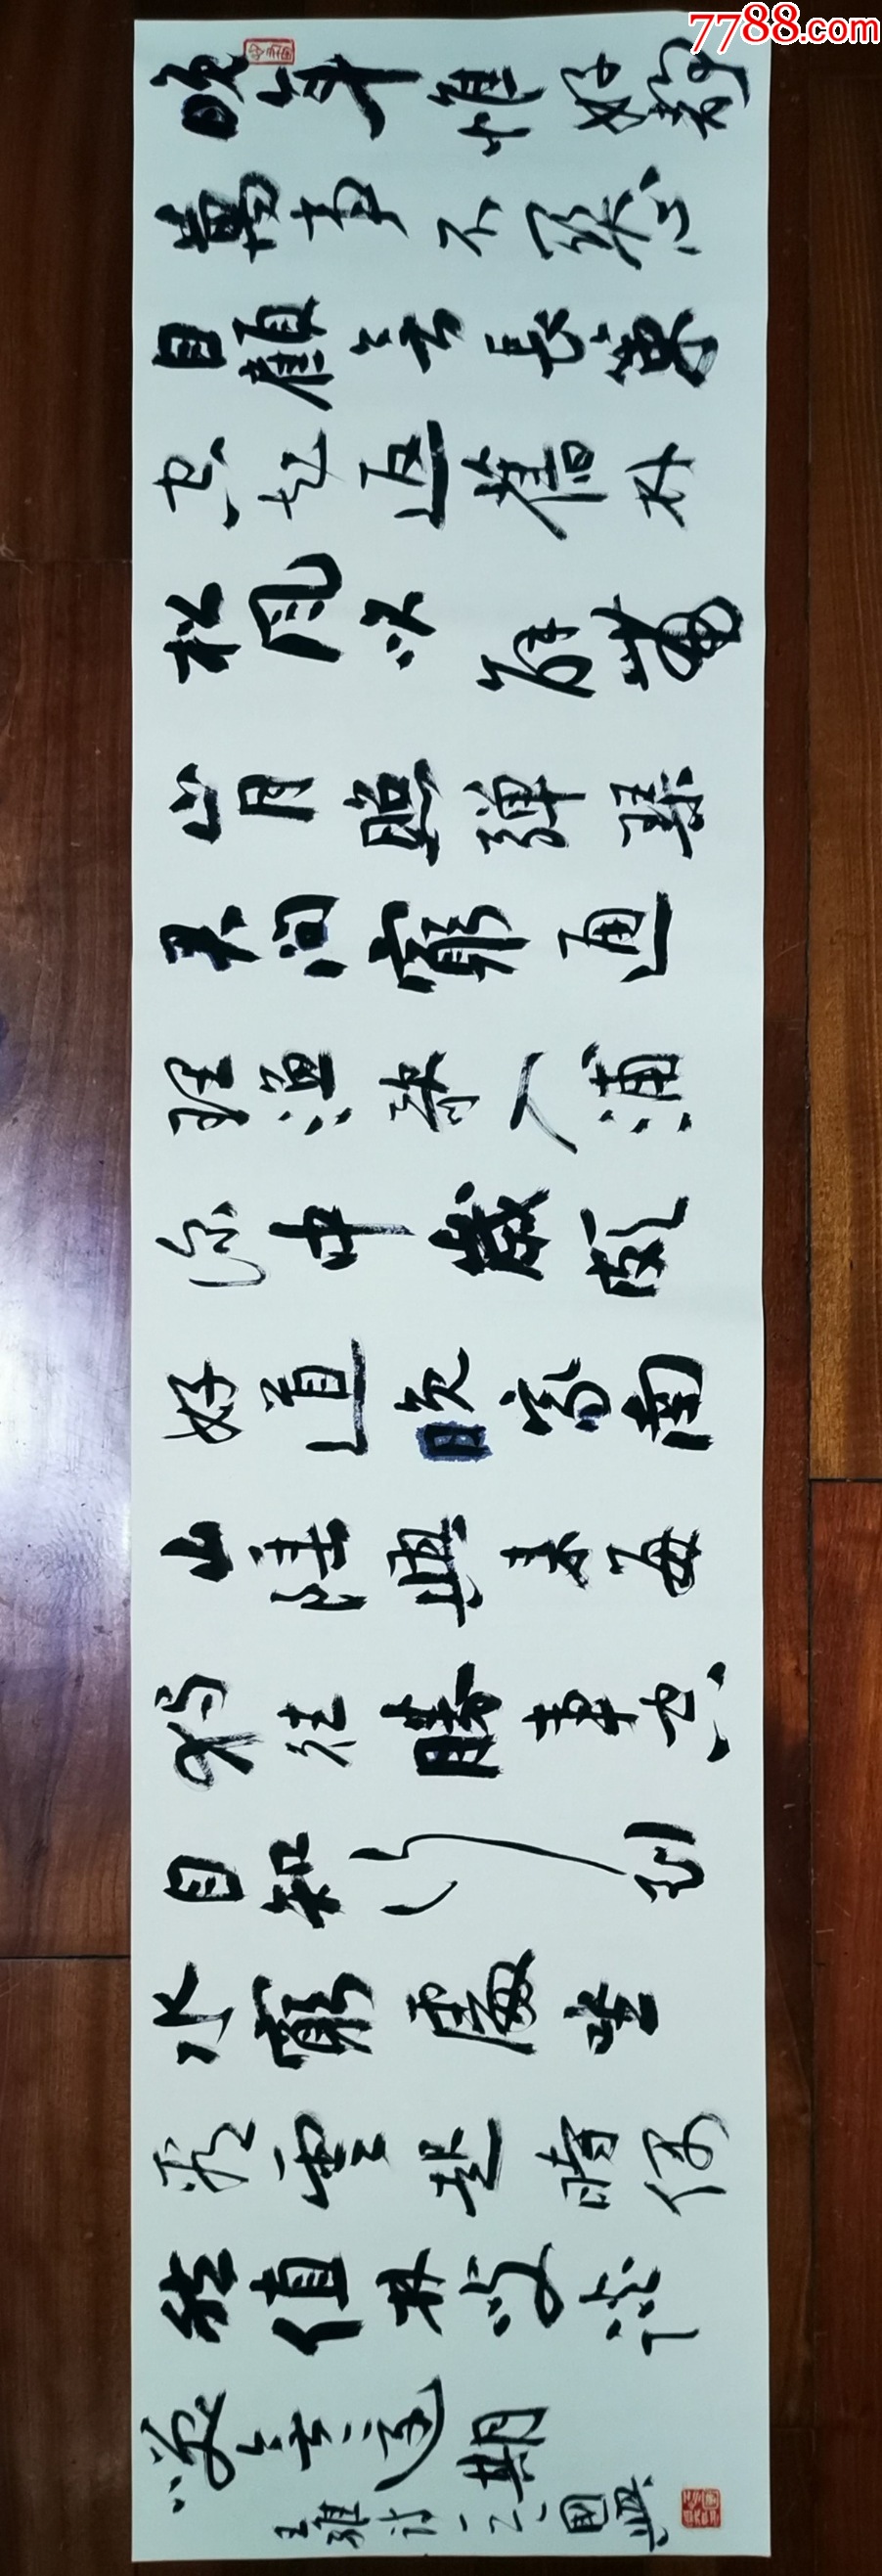 7788.com
晚年惟好静
萬事不关心
自顧無長策
空知返舊林
松風吹解帶
山月照彈琴
君问窮通
理漁歌入浦
深中歲頗
好道晚家南
山陲興来每
獨往勝事空
自知行到
水窮處坐
看雲起時偶
然值林叟談
笑無還期
王維诗二國興